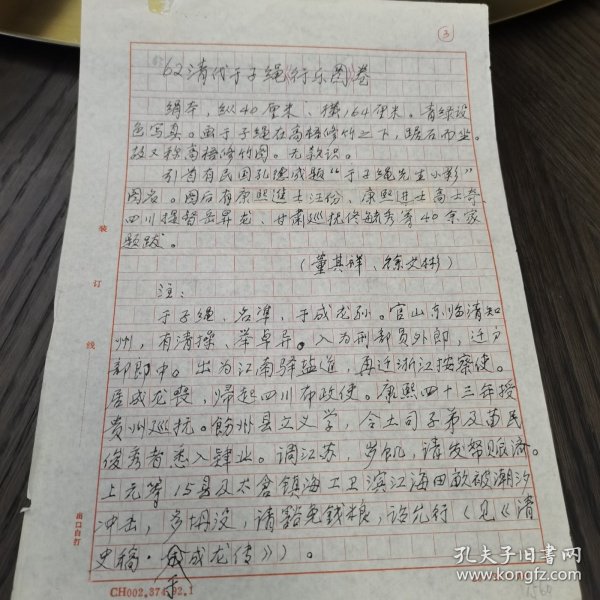 3
62 清代于子绳《行乐图》卷
绢本，纵40厘米、横164厘米。青绿设
色写真。画于子绳在高梧修竹之下，踞石而坐。
故又称高梧修竹图。无款识。
引首有民国孔德成题“于子绳先生小影”
图名。图后有康熙进士汪份、康熙进士高士奇、
四川提督岳昇龙、甘肃巡抚佟毓秀等40余家
题跋。
（董其祥、徐文彬）
注：
于子绳，名準，于成龙孙。官山东临清知
州，有清操，举卓异。入为刑部员外郎，迁户
部郎中。出为江南驿盐道，再迁浙江按察使。
居成龙丧，归起四川布政使。康熙四十三年授
贵州巡抚。饬州县立义学，令土司子弟及苗民
俊秀者悉入肄业。调江苏，岁饥，请发帑赈济。
上元等15县及太仓镇海二卫滨江海田亩被潮汐
冲击，多坍没，请豁免钱粮，诏允行（见《清
史稿·成龙传》）。
于
装
订
线
出口自打
CH002.874.02.1
孔夫子旧书网
www.kongfz.com